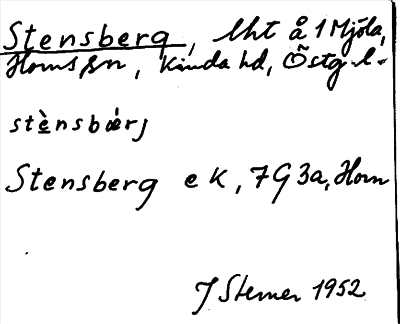 Stensberg, lht å 1 Mjöla,
Horns sn, Kinda hd, Östg. l.
stènsbærj
Stensberg e K, 7G 3a, Horn
J Sterner 1952